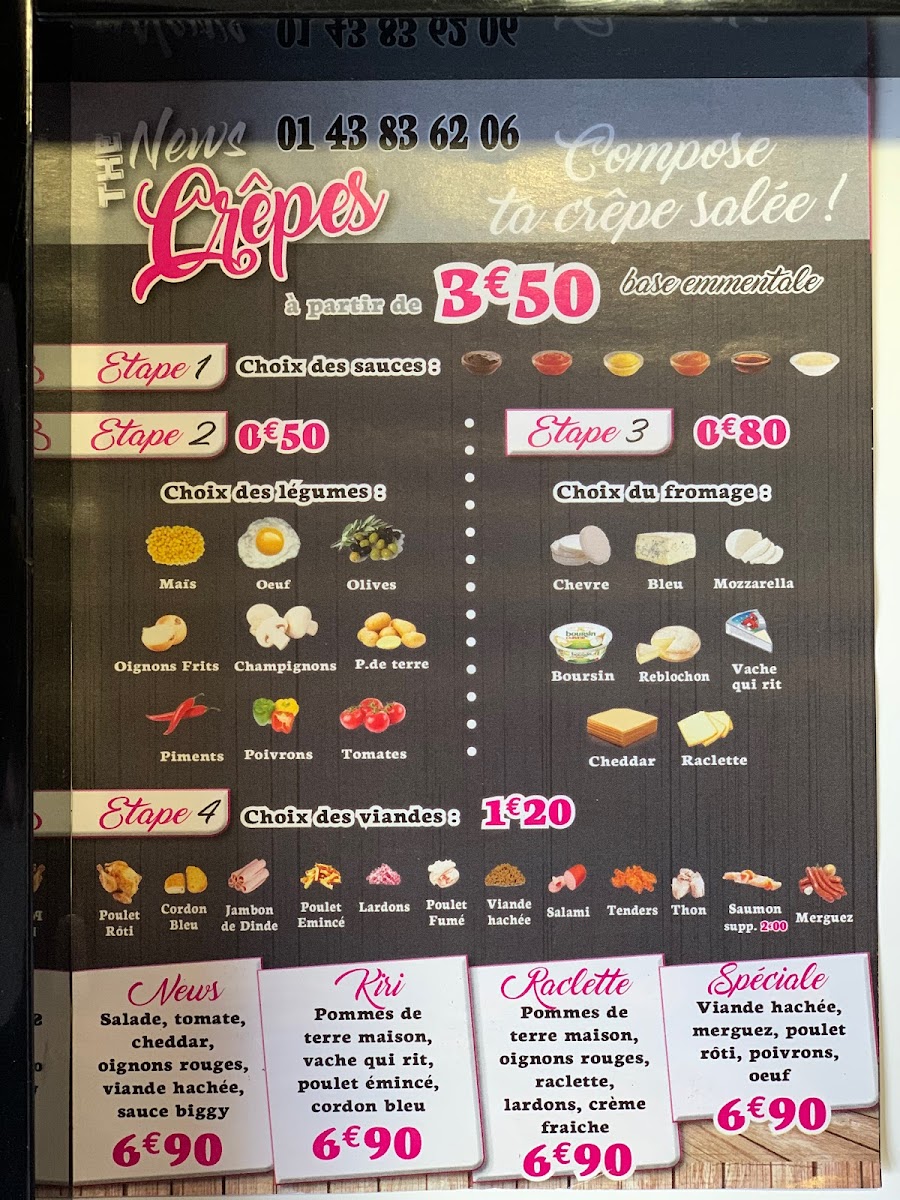 01 43 83 62 06
THE News 01 43 83 62 06
Crêpes
Compose
ta crêpe salée !
à partir de 3€50 base emmentale
Etape 1 Choix des sauces :
Etape 2 0€50
Choix des légumes :
Maïs Oeuf Olives
Oignons Frits Champignons P.de terre
Piments Poivrons Tomates
Etape 3 0€80
Choix du fromage :
Chevre Bleu Mozzarella
boursin
Boursin Reblochon Vache
qui rit
Cheddar Raclette
Etape 4 Choix des viandes : 1€20
Poulet
Rôti
Cordon
Bleu
Jambon
de Dinde
Poulet
Emincé
Lardons
Poulet
Fumé
Viande
hachée
Salami
Tenders
Thon
Saumon
supp. 2€00
Merguez
News
Salade, tomate,
cheddar,
oignons rouges,
viande hachée,
sauce biggy
6€90
Kiri
Pommes de
terre maison,
vache qui rit,
poulet émincé,
cordon bleu
6€90
Raclette
Pommes de
terre maison,
oignons rouges,
raclette,
lardons, crème
fraiche
6€90
Spéciale
Viande hachée,
merguez, poulet
rôti, poivrons,
oeuf
6€90